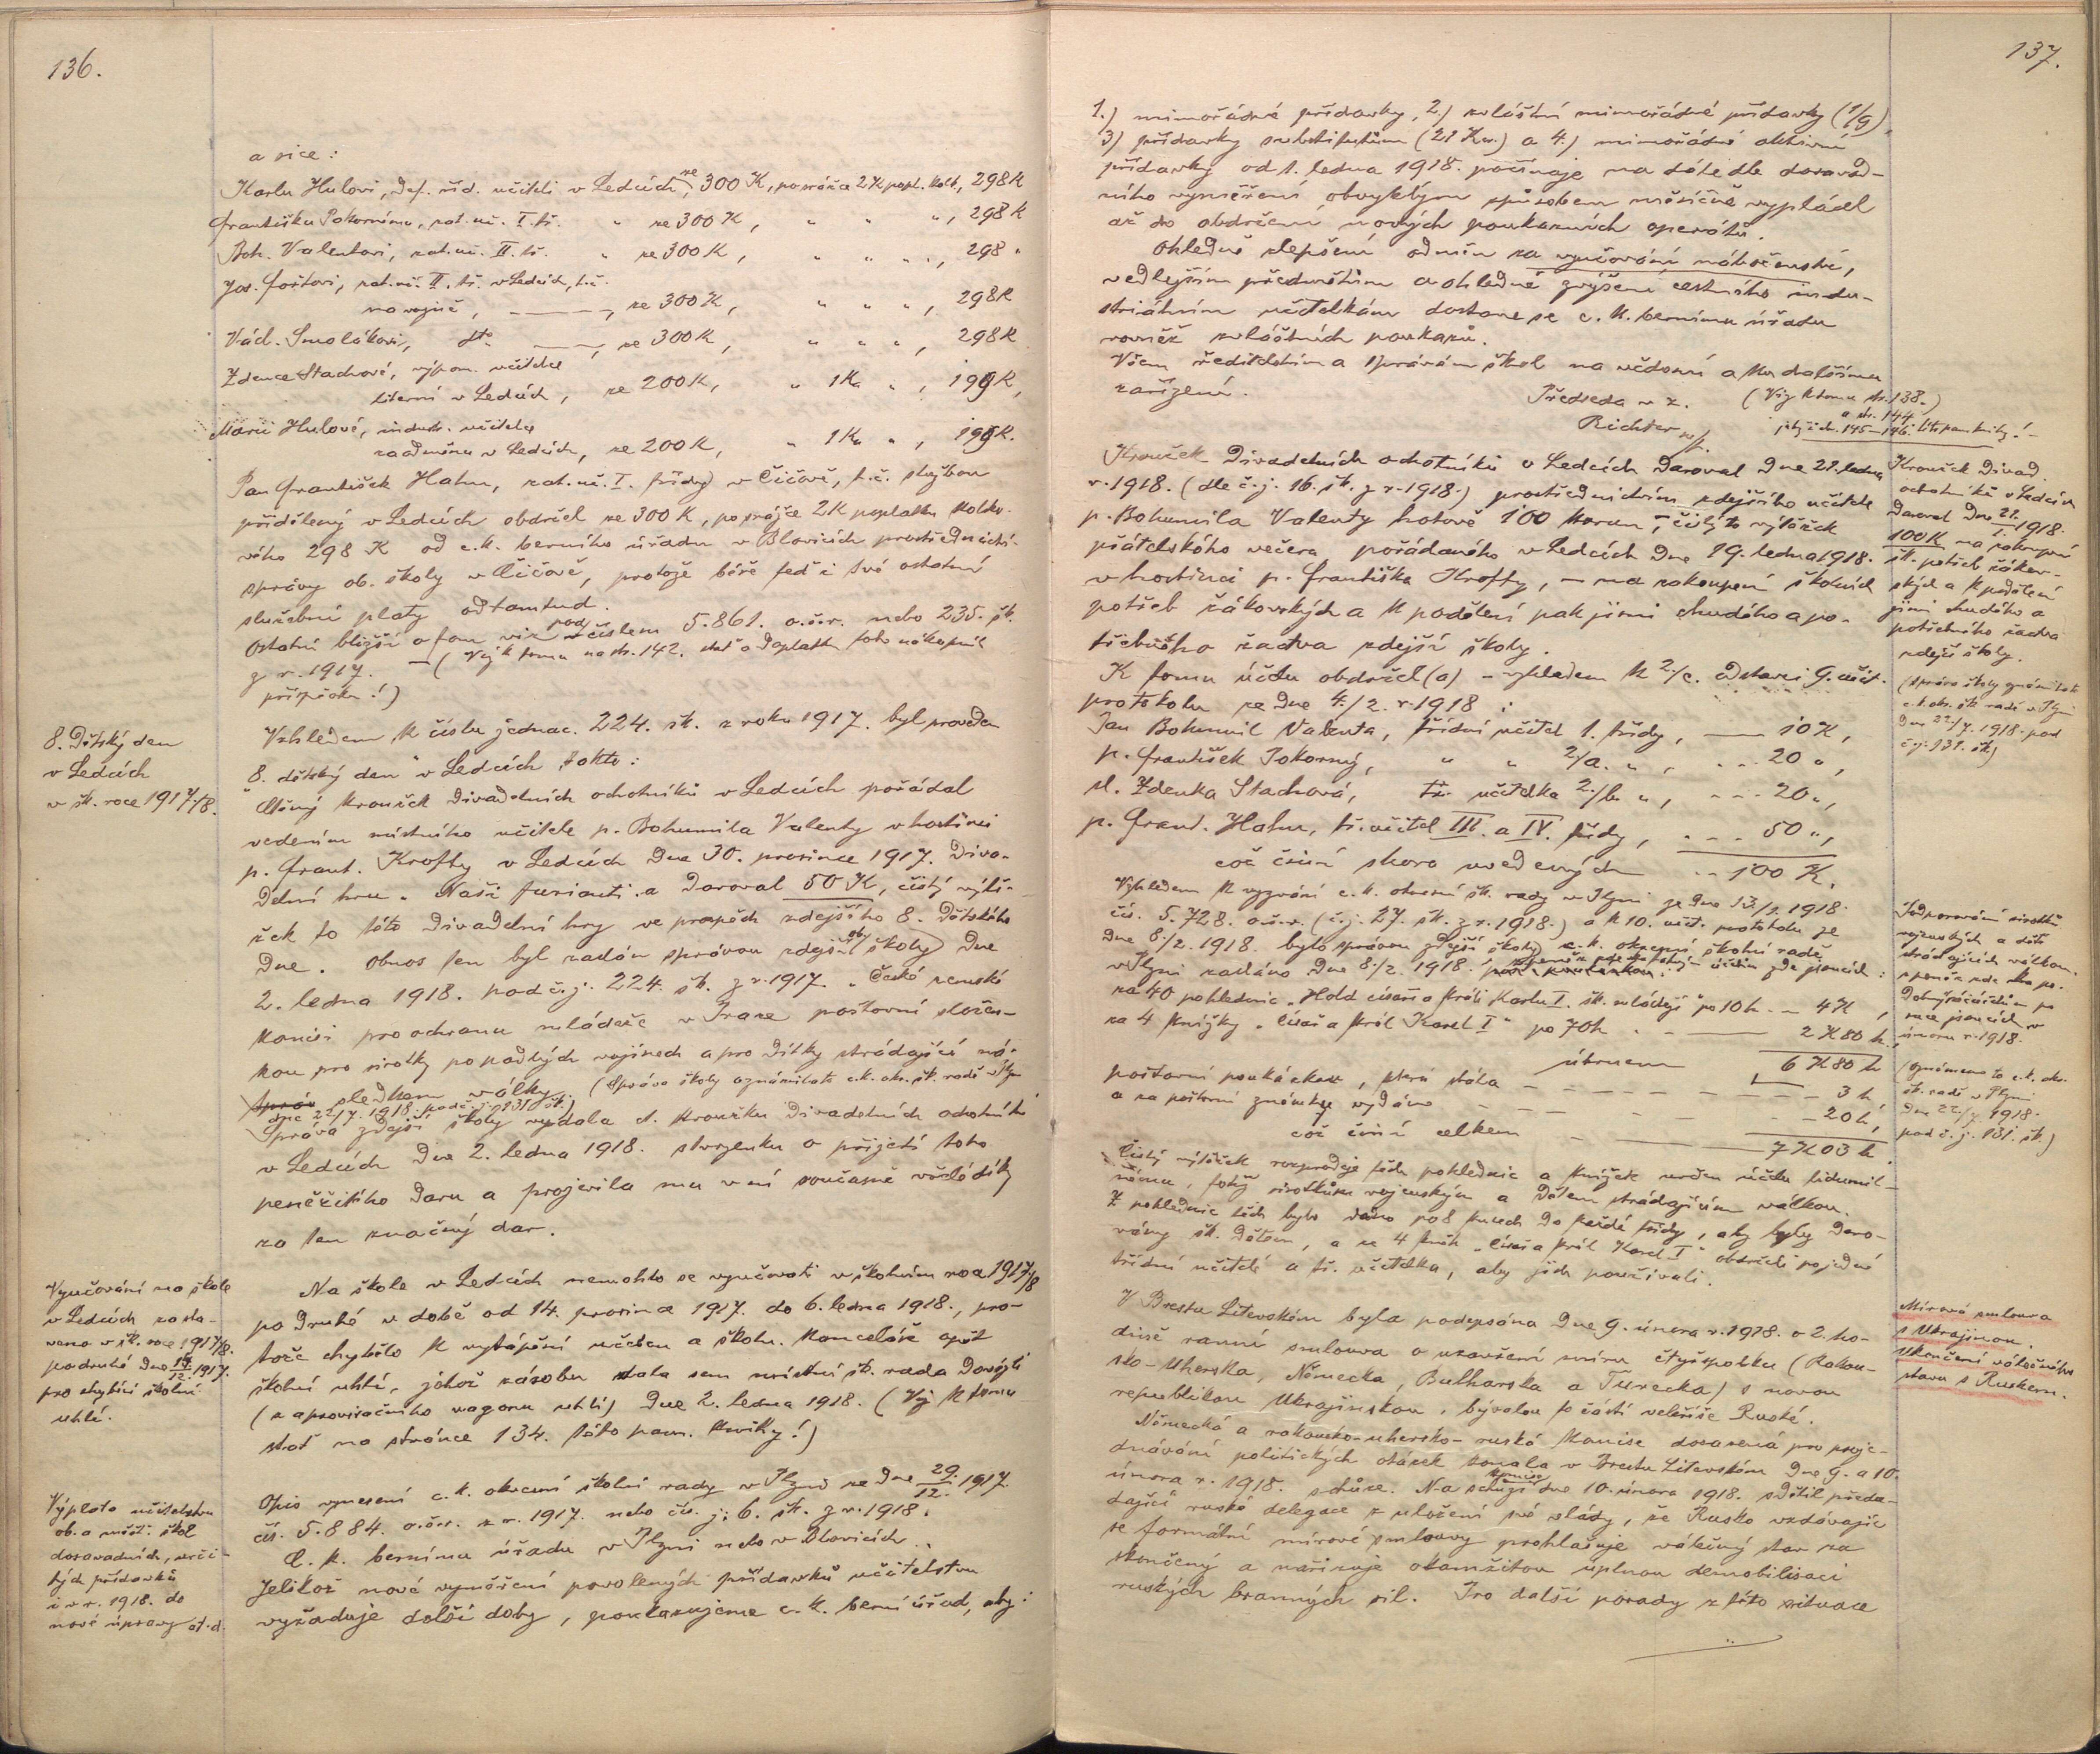 136.
a sice:
Karlu Hulovi, def. říd. učiteli v Ledcích, ze 300 K, po srážce 2 K popl. kolk., 298 K
Františku Pokornému, zat. uč. I. tř. " ze 300 K, " " ", 298 K
Boh. Valentovi, zat. uč. II. tř. " ze 300 K, " " ", 298 "
Jos. Foštovi, zat. uč. II. tř. v Ledcích, t. č.
na vojně, ——, ze 300 K, " " ", 298 K
Václ. Smolákovi, dto. ——, ze 300 K, " " ", 298 K
Zdence Stachové, výpom. učitelce
literní v Ledcích, ze 200 K, " 1 K " , 199 K,
Marii Hulové, industr. učitelce
za odměnu v Ledcích, ze 200 K, " 1 K " , 199 K.
Pan František Hahn, zat. uč. I. třídy v Čičově, t. č. službou
přidělený v Ledcích obdržel ze 300 K, po srážce 2 K poplatku kolko-
vého 298 K od c. k. berního úřadu v Blovicích prostřednictví
správy ob. školy v Čičově, protože béře teď i své ostatní
služební platy odtamtud.
Ostatní bližší o tom viz pod číslem 5.861. o.š.r. nebo 235. šk.
z r. 1917. — (Viz k tomu na str. 142. stať o doplatku toho nákupní
příspěvku!)
8. Dětský den
v Ledcích
v šk. roce 1917/18.
Vzhledem k číslu jednac. 224. šk. z roku 1917. byl proveden
"8. dětský den" v Ledcích takto:
Ctěný kroužek divadelních ochotníků v Ledcích pořádal
vedením místního učitele p. Bohumila Valenty v hostinci
p. Frant. Krofty v Ledcích dne 30. prosince 1917. diva-
delní hru "Naši furianti" a daroval 50 K, čistý výtě-
žek to této divadelní hry ve prospěch zdejšího 8. Dětského
dne. Obnos ten byl zaslán správou zdejší ob. školy dne
2. ledna 1918. pod č. j. 224. šk. z r. 1917. "České zemské
komisi pro ochranu mládeže v Praze poštovní složen-
kou pro sirotky po padlých vojínech a pro dítky strádající ná-
sledkem války. (Správa školy oznámila to c. k. okr. šk. radě v Plzni
dne 22/7. 1918. pod č. j. 131. šk.)
Správa zdejší školy vydala ct. kroužku divadelních ochotníků
v Ledcích dne 2. ledna 1918. stvrzenku o přijetí toho
peněžitého daru a projevila mu v ní současně vřelé díky
za ten značný dar.
Vyučování na škole
v Ledcích zasta-
veno v šk. roce 1917/8.
podruhé dne 14./12. 1917.
pro chybící školní
uhlí.
Na škole v Ledcích nemohlo se vyučovati v školním roce 1917/8
po druhé v době od 14. prosince 1917. do 6. ledna 1918., pro-
tože chybělo k vytápění učeben a školn. kanceláře opět
školní uhlí, jehož zásobu dala sem místní šk. rada dovézti
(z aprovisačního vagonu uhlí) dne 2. ledna 1918. (Viz k tomu
stať na stránce 134. této pam. knihy!)
Výplata učitelstvu
ob. a měšť. škol
dosavadních, urči-
tých přídavků
i v r. 1918. do
nové úpravy atd.
Opis vynesení c. k. okresní školní rady v Plzni ze dne 29./12. 1917.
čís. 5.884. o.š.r. z r. 1917. nebo čís. j. 6. šk. z r. 1918.
C. k. bernímu úřadu v Plzni nebo v Blovicích.
Jelikož nové vyměření povolených přídavků učitelstvu
vyžaduje delší doby, poukazujeme c. k. berní úřad, aby:
137.
1.) mimořádné přídavky, 2.) zvláštní mimořádné přídavky (1/9)
3) přídavky substitutům (21 K) a 4.) mimořádné aktivní
přídavky od 1. ledna 1918. počínaje na dále dle dosavad-
ního vyměření obvyklým způsobem měsíčně vyplácel
až do obdržení nových poukazních operátů.
Ohledně zlepšení odměn za vyučování náboženství,
vedlejším předmětům a ohledně zvýšení cestného indu-
striálním učitelkám dostane se c. k. bernímu úřadu
rovněž zvláštních poukazů.
Všem ředitelstvím a správám škol na vědomí a ku dalšímu
zařízení.
Předseda v z. (Viz k tomu str. 138.)
Richter a str. 144.
jakož i str. 145–146. této pam. knihy!
Kroužek divadelních ochotníků v Ledcích daroval dne 21. ledna
r. 1918. (dle č. j. 16. šk. z r. 1918.) prostřednictvím zdejšího učitele
p. Bohumila Valenty hotově 100 korun, čistý to výtěžek
přátelského večera, pořádaného v Ledcích dne 19. ledna 1918.
v hostinci p. Františka Krofty, — na zakoupení školních
potřeb žákovských a k podělení pak jimi chudého a po-
třebného žactva zdejší školy.
Kroužek divad.
ochotníků v Ledcích
daroval dne 21./1. 1918.
100 K na zakoupení
šk. potřeb žákov-
ských a k podělení
jimi chudého a
potřebného žactva
zdejší školy.
(Správa školy oznámila to
c. k. okr. šk. radě v Plzni
dne 22/7. 1918. pod
č. j. 131. šk.)
K tomu účelu obdržel (a) – vzhledem k 2./c. odstavci 9. učit.
protokolu ze dne 4./2. r. 1918:
Pan Bohumil Valenta, třídní učitel 1. třídy, —— 10 K,
p. František Pokorný, " " 2/a. " , --- 20 ",
sl. Zdenka Stachová, tř. učitelka 2./b. ", --- 20 ",
p. Frant. Hahn, tř. učitel III. a IV. třídy, --- 50 ",
což činí shora uvedených -- 100 K.
Vzhledem k vyzvání c. k. okresní šk. rady v Plzni ze dne 13./1. 1918.
čís. 5.728. o.š.r. (č. j. 27. šk. z r. 1918.) a k 10. učit. protokolu ze
dne 8./2. 1918. bylo správou zdejší školy c. k. okresní školní radě
v Plzni zasláno dne 8./2. 1918.
za 40 pohlednic "Hold císaři a králi Karlu I. šk. mládeží" po 10 h -- 4 K,
za 4 knížky "Císař a král Karel I." po 70 h -- —— 2 K 80 h.,
úhrnem 6 K 80 h
poštovní poukázkou, která stála — — — 3 h,
a za poštovní známky vydáno — — — 20 h,
což činí celkem — — 7 K 03 h.
Podporování sirotků
vojenských a dětí
strádajících válkou
únoru r. 1918.
(Oznámeno to c. k. okr.
šk. radě v Plzni
dne 22/7. 1918.
pod č. j. 131. šk.)
Čistý výtěžek rozprodeje těch pohlednic a knížek určen účelu lidumil-
nému, totiž sirotkům vojenským a dětem strádajícím válkou.
Z pohlednic těch bylo dáno po 8 kusech do každé třídy, aby byly daro-
vány šk. dětem, a ze 4 knih "Císař a král Karel I." obdrželi po jedné
třídní učitelé a tř. učitelka, aby jich používali.
V Brestu Litevském byla podepsána dne 9. února r. 1918. o 2. ho-
dině ranní smlouva o uzavření míru čtyřspolku (Rakou-
sko-Uherska, Německa, Bulharska a Turecka) s novou
republikou Ukrajinskou, bývalou to částí veleříše Ruské.
Mírová smlouva
s Ukrajinou.
Ukončení válečného
stavu s Ruskem.
Německá a rakousko-uhersko-ruská komise dosazená pro proje-
dnávání politických otázek konala v Brestu Litevském dne 9. a 10.
února r. 1918. schůze. Na schůzi komise dne 10. února 1918. sdělil předse-
dající ruské delegace z uložení své vlády, že Rusko vzdávajíc
se formální mírové smlouvy prohlašuje válečný stav za
skončený a nařizuje okamžitou úplnou demobilisaci
ruských branných sil. Pro další porady z této situace